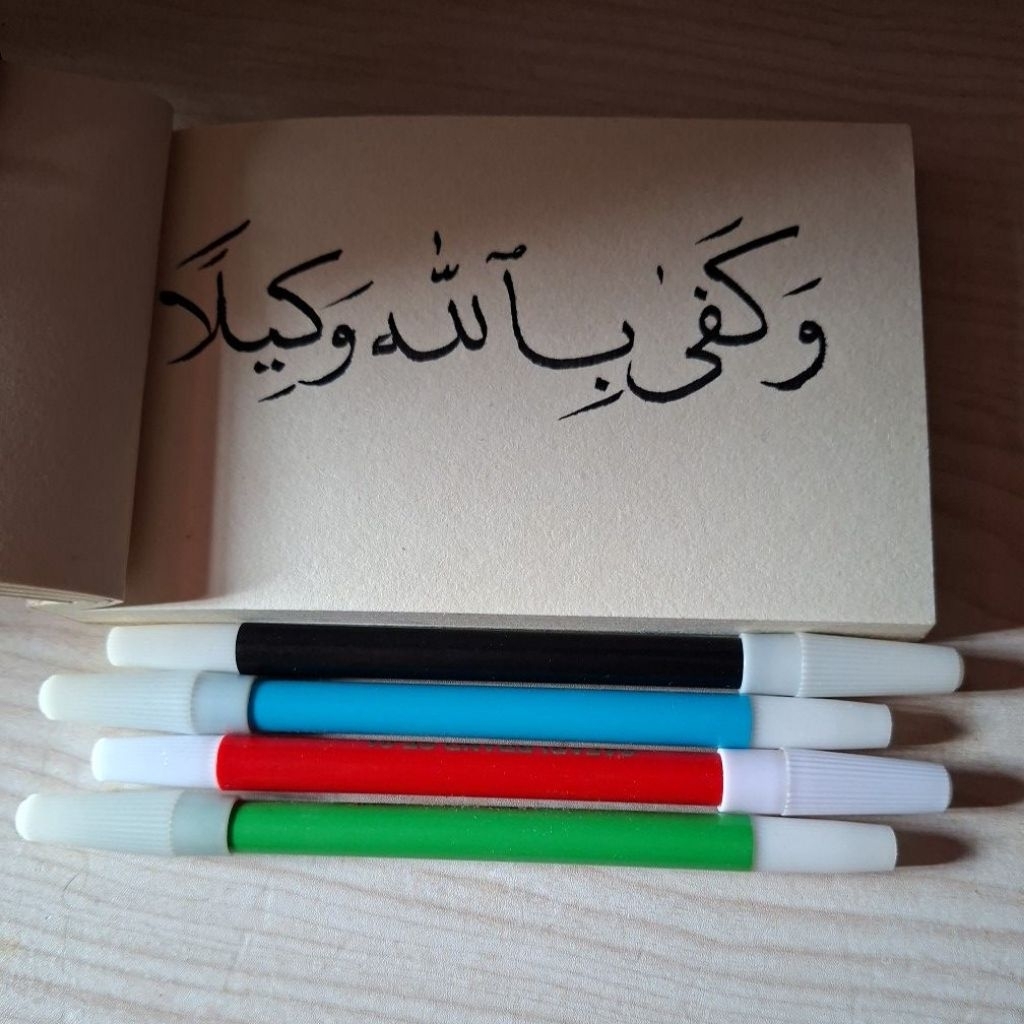 وَكَفَىٰ بِٱللَّٰهِ وَكِيلًا